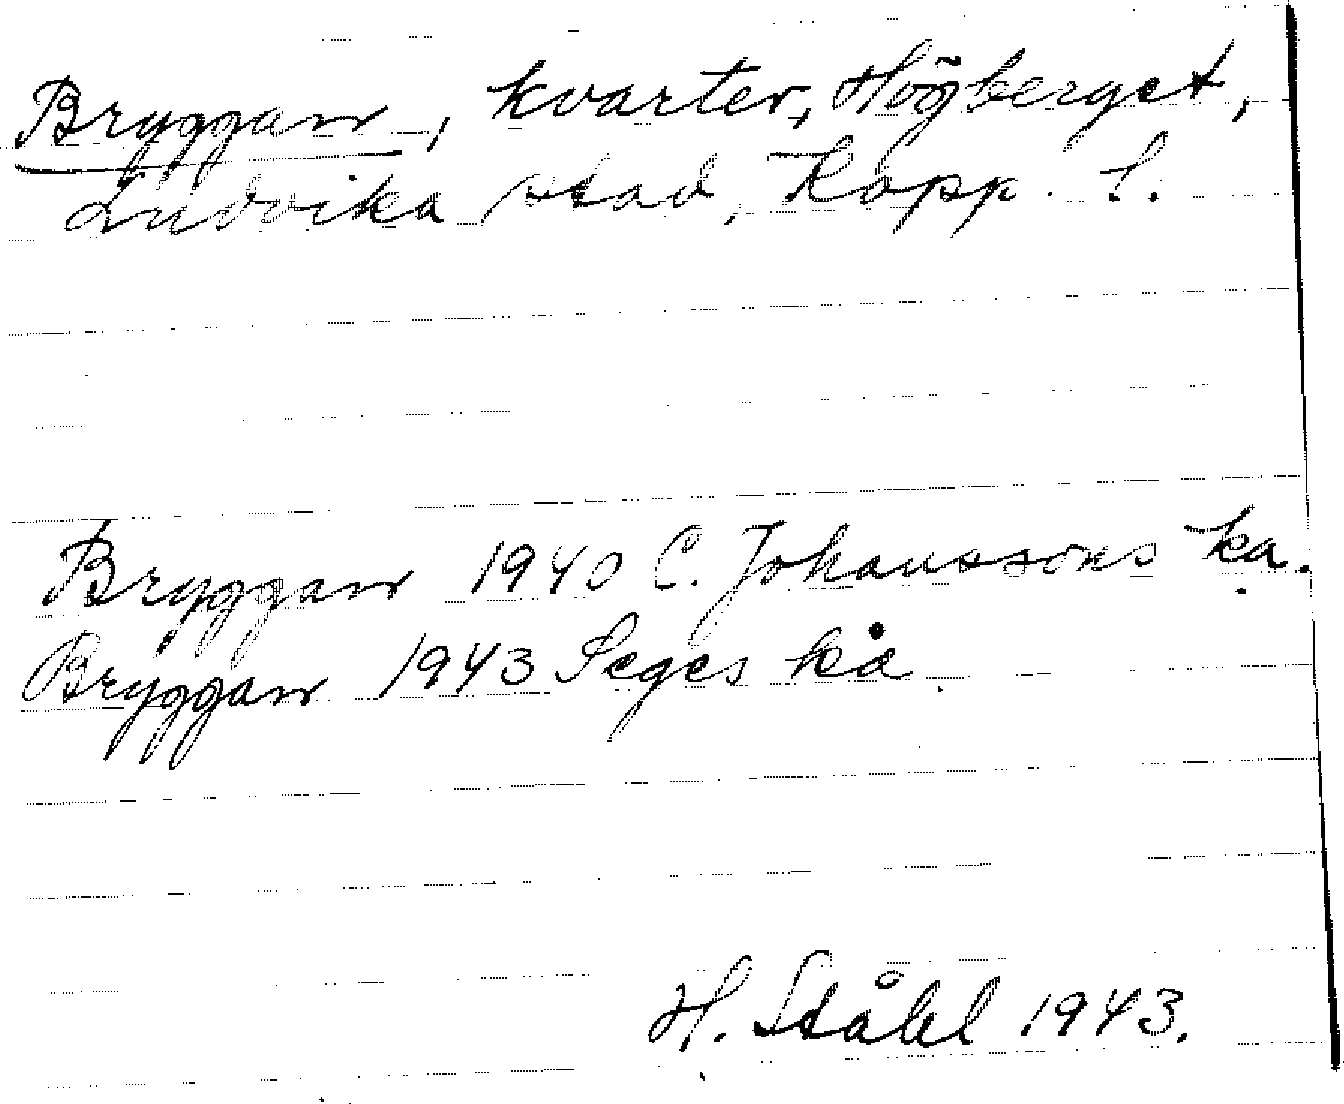 Bryggan, kvarter, Högberget,
Ludvika stad, Kopp. l.
Bryggan 1940 C. Johanssons ka.
Bryggan 1943 Seges ka
H. Ståhl 1943.